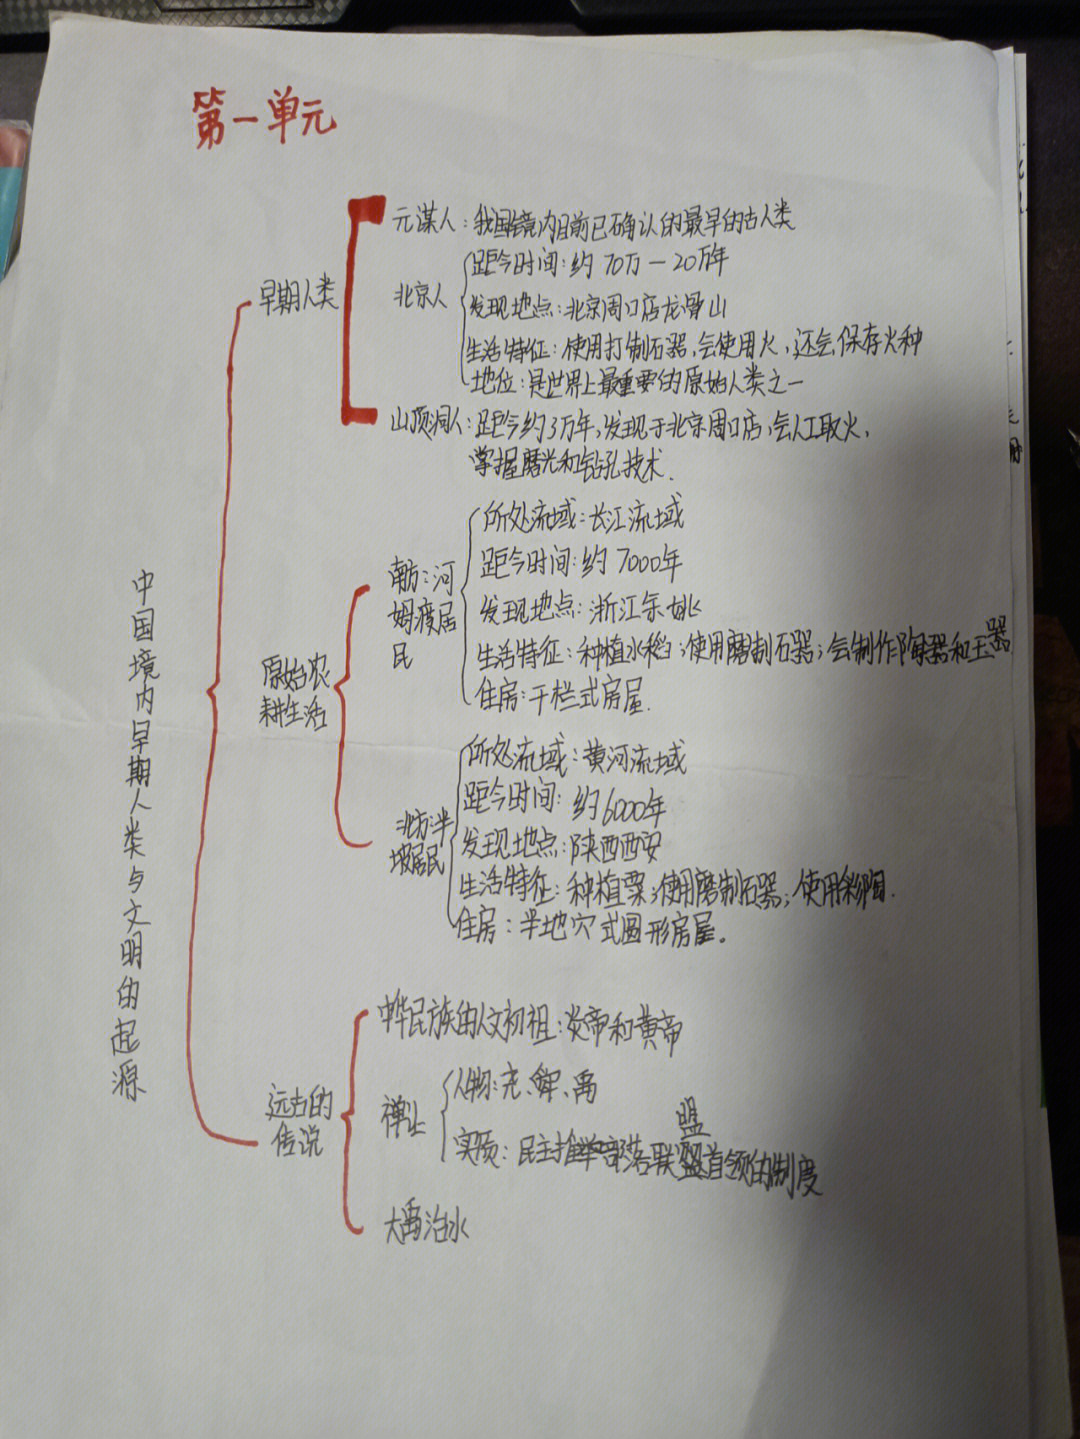 第一单元
中国境内早期人类与文明的起源
早期人类
元谋人：我国镜内目前已确认的最早的古人类
北京人
距今时间：约70万—20万年
发现地点：北京周口店龙骨山
生活特征：使用打制石器，会使用火，还会保存火种
地位：是世界上最重要的原始人类之一
山顶洞人：距今约3万年，发现于北京周口店，会人工取火，
掌握磨光和钻孔技术.
原始农
耕生活
南方：河
姆渡居
民
所处流域：长江流域
距今时间：约7000年
发现地点：浙江余姚
生活特征：种植水稻；使用磨制石器；会制作陶器和玉器
住房：干栏式房屋.
北方：半
坡居民
所处流域：黄河流域
距今时间：约6000年
发现地点：陕西西安
生活特征：种植粟；使用磨制石器；使用彩陶.
住房：半地穴式圆形房屋.
远古的
传说
中华民族的人文初祖：炎帝和黄帝
禅让
人物：尧、舜、禹
盟
实质：民主推举部落联盟首领的制度
大禹治水